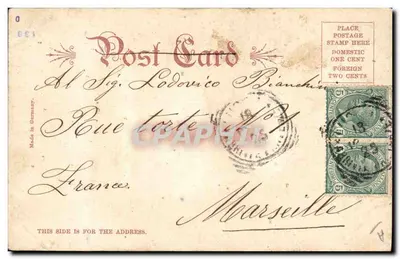 PLACE
POSTAGE
STAMP HERE
DOMESTIC
ONE CENT
FOREIGN
TWO CENTS
Post Card
Al Sig. Lodovico Bianchi
Rue torte No 1
France
Marseille
Made in Germany.
THIS SIDE IS FOR THE ADDRESS.
CPAPHIL